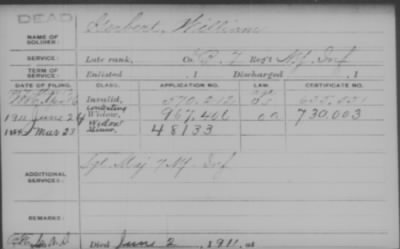 DEAD
NAME OF SOLDIER: Herbert, William
SERVICE: Late rank, Co. 7 Reg't N.Y. Inf
TERM OF SERVICE: Enlisted , 1 Discharged , 1
DATE OF FILING. CLASS. APPLICATION NO. LAW. CERTIFICATE NO.
Invalid, 570.212
Contesting
1911 June 24 Widow, 967.400 730.003
Widow
Mar 23 Minor, 48133
ADDITIONAL SERVICES: Sgt. Maj 7 N.Y. Inf
REMARKS:
Died June 2, 1911, at